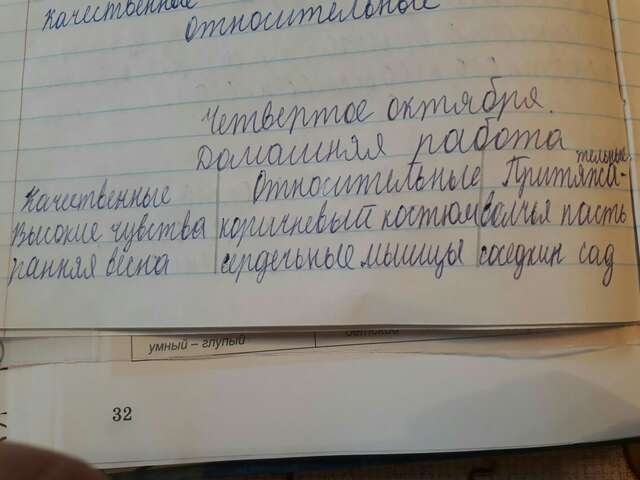 Качественные
Относительные
Четвертое октября.
Домашняя работа
Качественные Относительные Притяжа-
тельные
Высокие чувства коричневый костюм волчья пасть
ранняя весна сердечные мышцы соседкин сад
умный – глупый
32